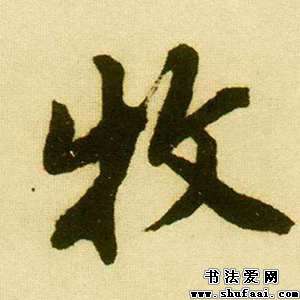 牧
书法爱网
www.shufaai.com